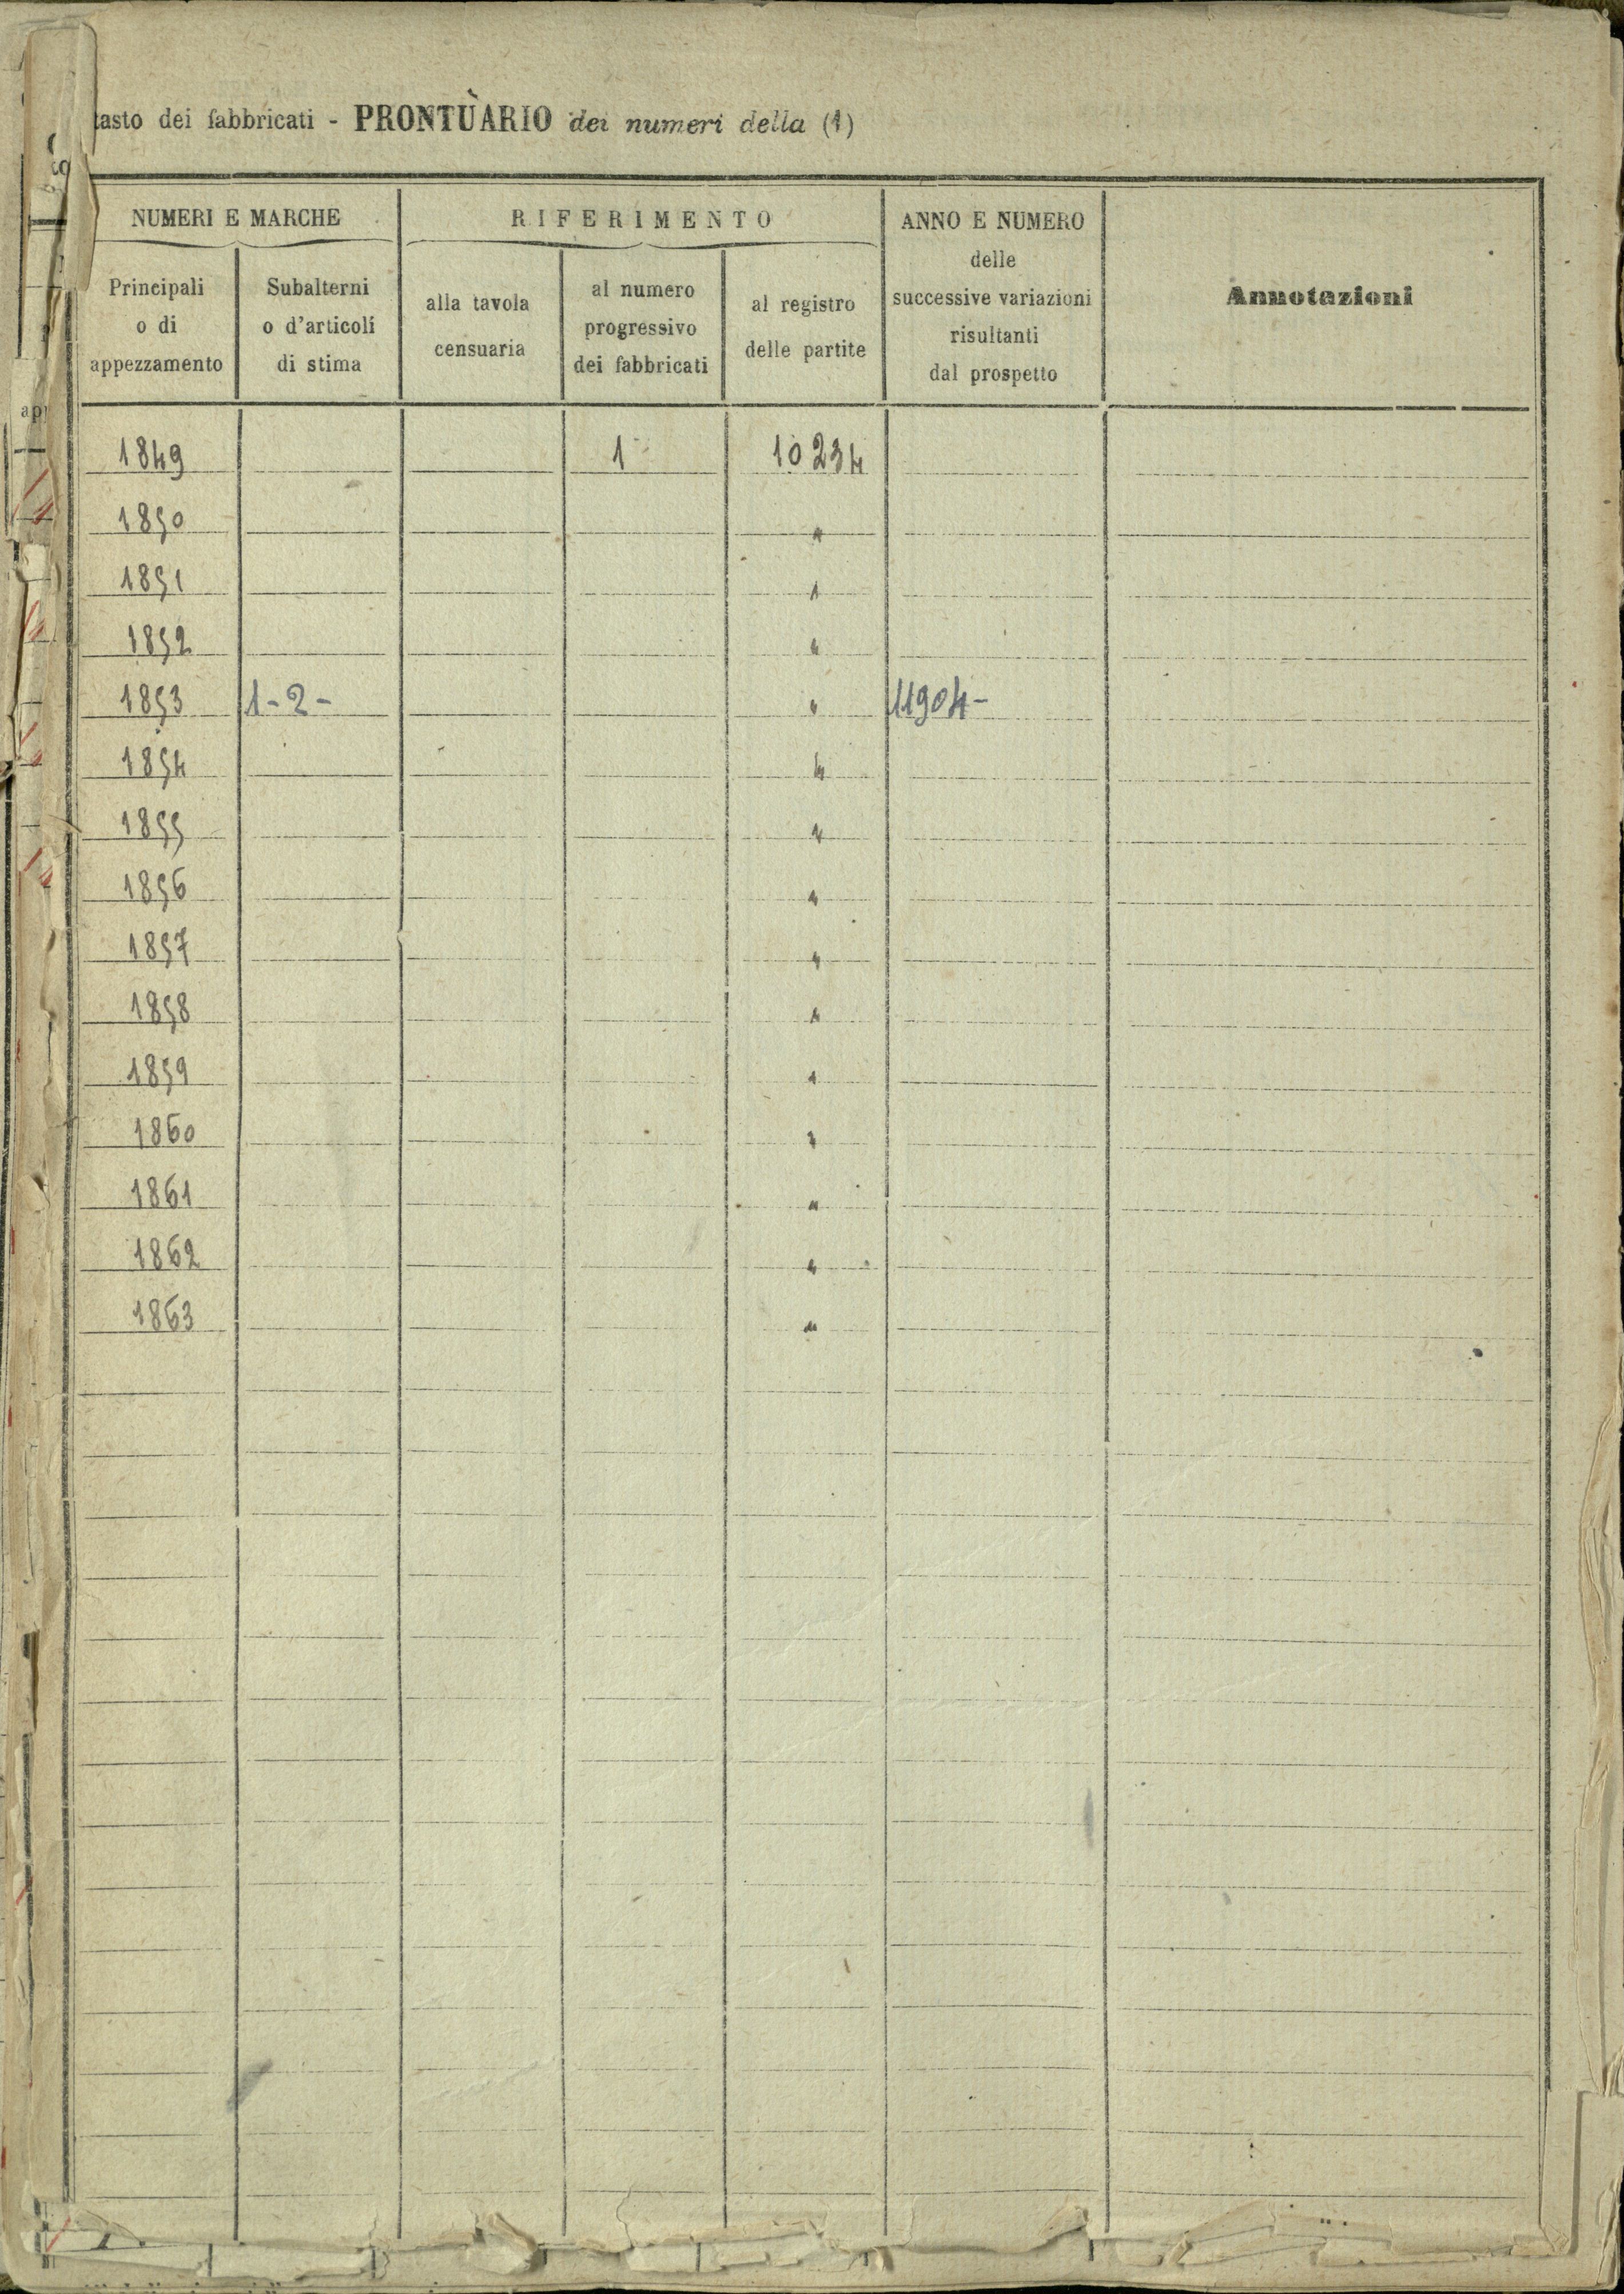 tasto dei fabbricati - PRONTÙARIO dei numeri della (1)
NUMERI E MARCHE
RIFERIMENTO
ANNO E NUMERO
delle
successive variazioni
risultanti
dal prospetto
Annotazioni
Principali
o di
appezzamento
Subalterni
o d'articoli
di stima
alla tavola
censuaria
al numero
progressivo
dei fabbricati
al registro
delle partite
1849 1 10234
1850 "
1851 "
1852 "
1853 1-2- " 11904-
1854 "
1855 "
1856 "
1857 "
1858 "
1859 "
1860 "
1861 "
1862 "
1863 "